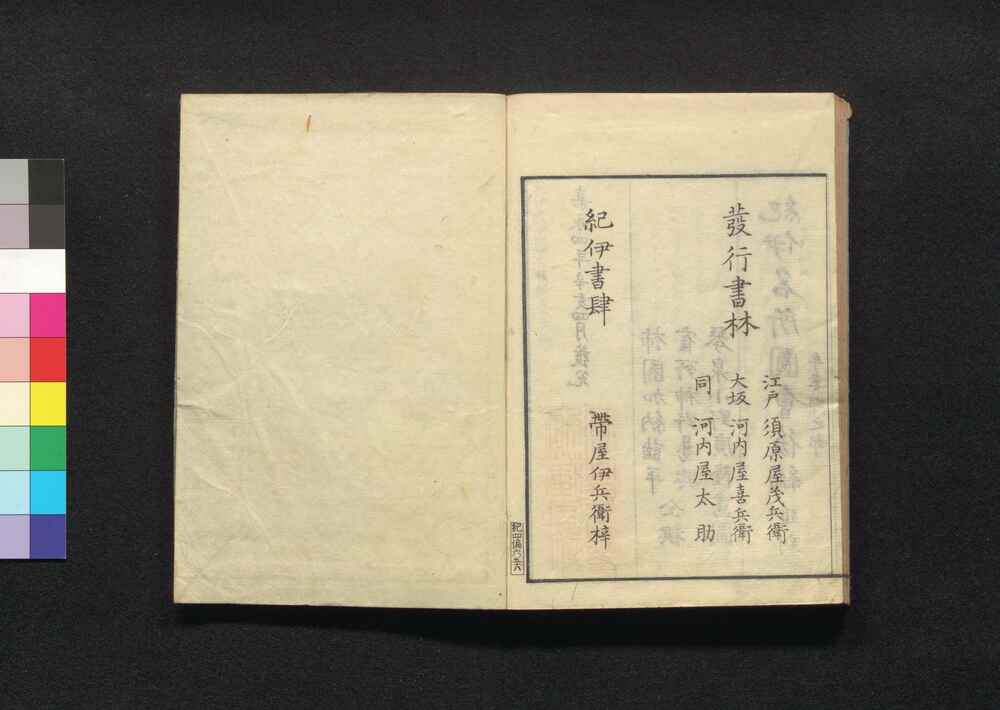 發行書林
江戸 須原屋茂兵衛
大坂 河内屋喜兵衛
同 河内屋太助
紀伊書肆 帶屋伊兵衛梓